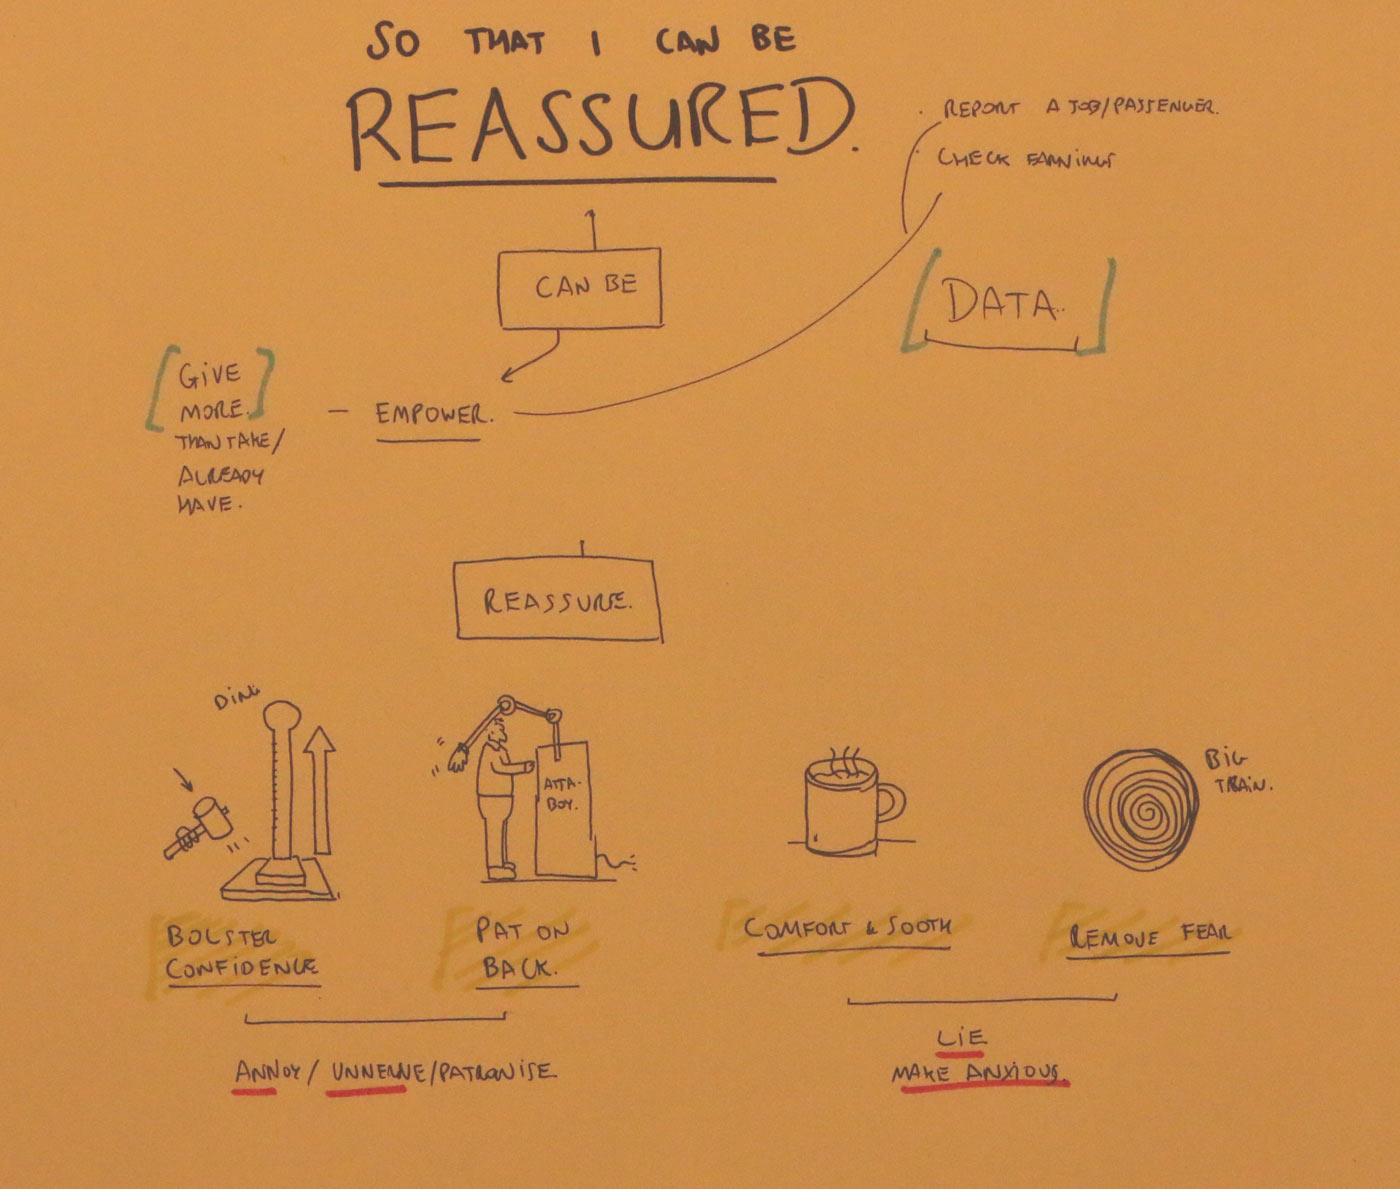 SO THAT I CAN BE
REASSURED.
· REPORT A JOB/PASSENGER.
· CHECK EARNINGS
CAN BE
[DATA.]
[GIVE
MORE.]
THAN TAKE/
ALREADY
HAVE.
— EMPOWER.
REASSURE.
DING
ATTA-
BOY.
BIG
TRAIN.
BOLSTER
CONFIDENCE
PAT ON
BACK.
COMFORT & SOOTH
REMOVE FEAR
ANNOY/ UNNERVE/PATRONISE
LIE
MAKE ANXIOUS.